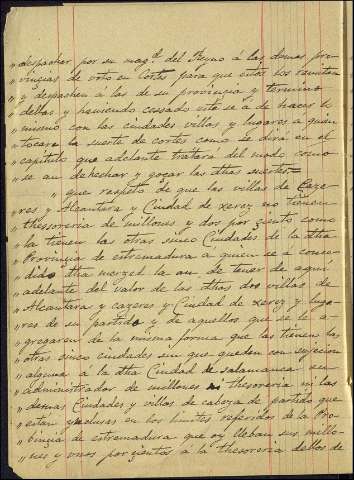 „ despachen por su mag.d del Reyno á las demas pro-
„ vinçias de voto en Cortes para que estos los remitan
„ y despachen á las de su provinçia y termino
„ debas, y haviendo cessado esto se á de hacer lo
„ mismo con las ciudades villas y lugares a quien
„ tocare la suerte de cortes como se dirá en el
„ capitulo que adelante tratará del modo como
„ se an de hechar y goçar las dhas suertes =
„ que respeto de que las villas de Caze-
„ res y Alcantara y Ciudad de xerez no tienen
„ thessoreria de millones y dos por çiento como
„ la tienen las otras sinco Ciudades de la dha
„ Provinçia de estremadura a quien se á conce-
„ dido dha merzed la an de tener de aqui
„ adelante del valor de las dhas dos villas de
„ Alcantara y cazeres y Ciudad de xerez y luga-
„ res de su partido y de aquellos que se le a-
„ gregaren de la misma forma que las tienen las
„ otras sinco ciudades sin que queden con sujecion
„ alguna á la dha Ciudad de Salamanca su
„ administrador de millones ni thesoreria ni las
„ demas Ciudades y villas de cabeza de partido que
„ estan ynclusas en los limites referidos de la Pro-
„ binçia de estremadura que oy lleban sus millo-
„ nes y unos por çientos á la thesoreria dellos de